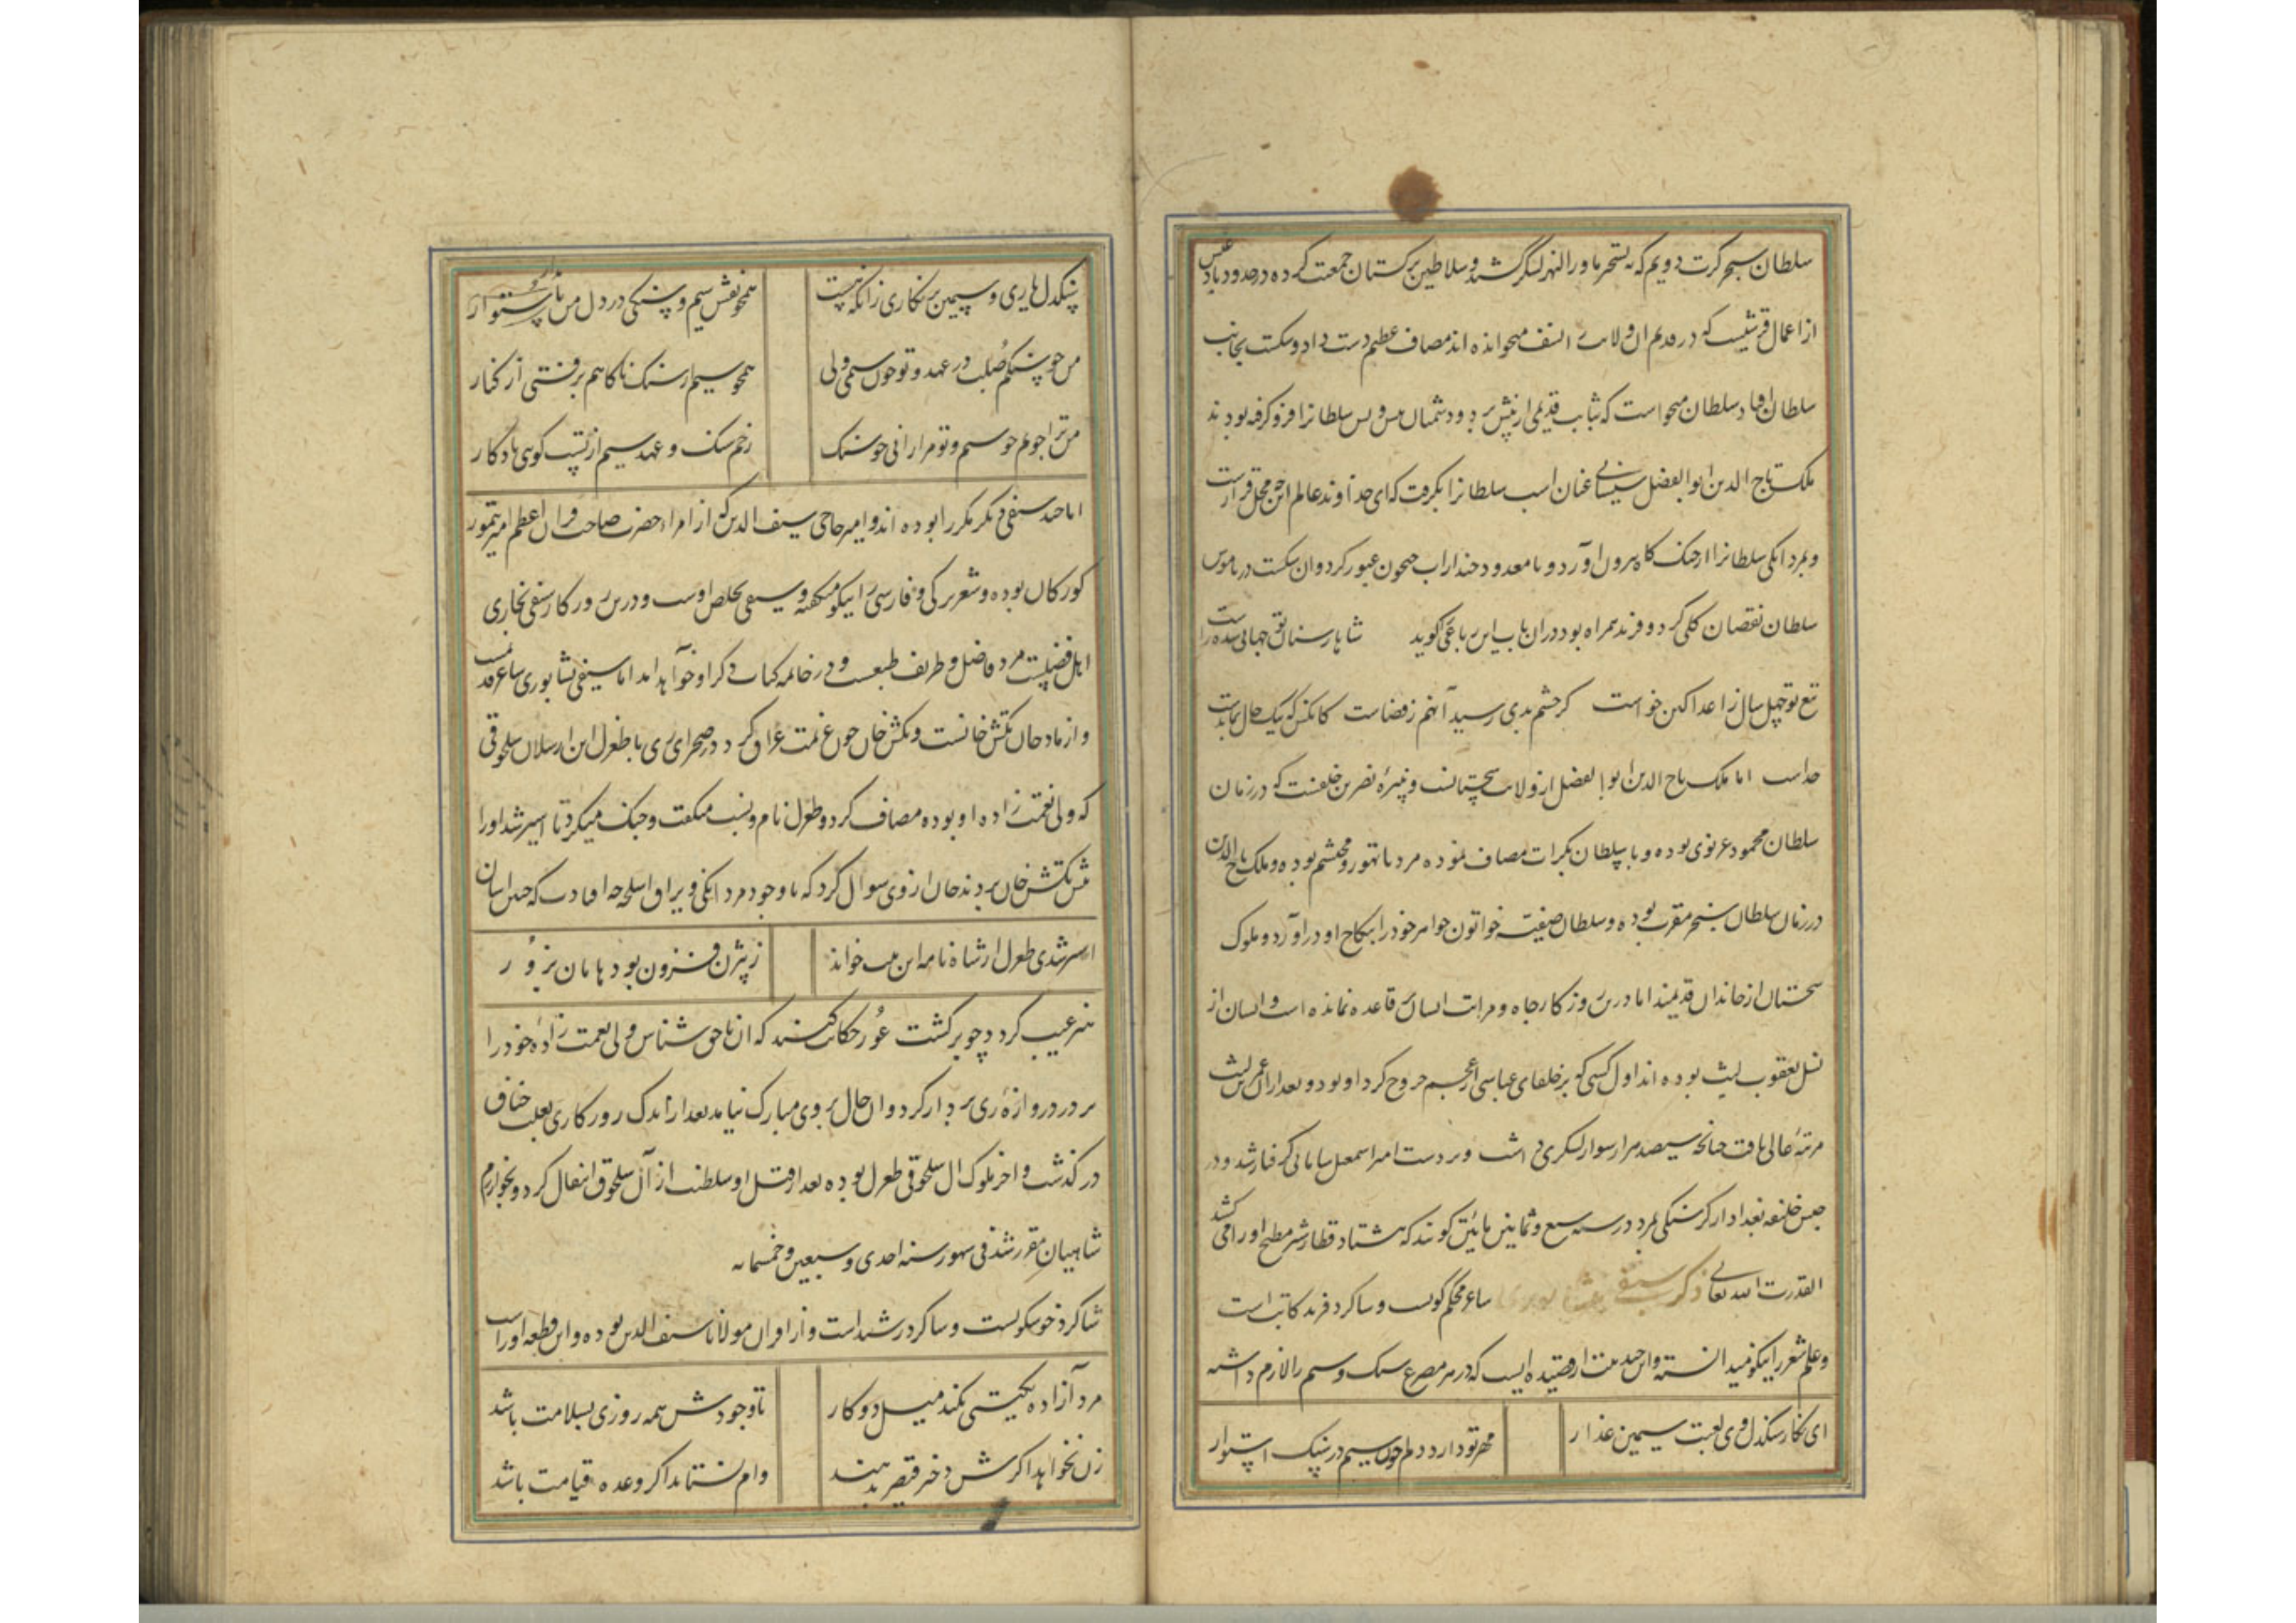 سلطان سنجر کرت دویم که به تسخیر ماورا النهر لشکر کشید و سلاطین ترکستان جمعت کرده در حدود بادغیس
از اعمال قرشیست که در قدیم آن ولایت نسف میخوانده اند مصاف عظیم دست داد و شکست بجانب
سلطان افتاد سلطان میخواست که ثبات قدیمی از پیش برد و دشمنان پس و پس سلطانرا فرو کرفته بودند
ملک تاج الدین ابو الفضل سیستانی عنان اسب سلطانرا بکرفت که ای خداوند عالم این چه محل قرارست
و بمردانکی سلطانرا از جنک کاه بیرون آورد و با معدود چند از آب جیحون عبور کرد و ان شکست در ناموس
سلطان نقصان کلی کرد و فرند همراه بود در ان باب این رباعی کوید شاها ز سنان تو جهانی شده راست
تیغ تو چهل سال ز اعدا کین خواست کر چشم بدی رسید آنهم ز قضاست کانکس که بیک حال بماندست
خداست اما ملک تاج الدین ابو الفضل از ولات سجستانست و نبیرهٔ نصر بن خلفست که در زمان
سلطان محمود غزنوی بوده و با سلطان بکرات مصاف نموده مرد با تهور و محتشم بوده و ملک تاج الدین
در زمان سلطان سنجر مقرب بوده و سلطان صفیه خواتون خواهر خود را بنکاح او در آورد و ملوک
سجستان از خاندان قدیمند اما درین روزکار جاه و مراتب ایشان بر قاعده نمانده است و ایشان از
نسل یعقوب لیث بوده اند اول کسی که بر خلفای عباسی از عجم خروج کرد او بود و بعد از آن عمرو لیث
مرتبهٔ عالی یافت چنانچه سیصد هزار سوار لشکری داشت و بر دست امیر اسمعیل سامانی کرفتار شد و در
حبس خلیفه بغداد از کرسنکی بمرد در سنه سبع و ثمانین مائتین کویند که هشتاد قطار شتر مطبخ او را می کشید
القدرت لله تعالی ذکر سیفی نیشابوری شاعر محکم کویست و شاکرد فرید کاتبست
و علم شعر را نیکو میدانسته و این چند بیت از قصیده ایست که در هر مصرع سنک و سیم را لازم داشته
ای نکار سنکدل وی لعبت سیمین عذار مهر تو دارد دلم چون سیم در سنک استوار
سنکدل یاری و سیمین بر نکاری زانکه هست همچو نقش سیم و سنکی در دل من پایدار
من چو سنکم صلب در عهد و تو چون سیمی ولی همچو سیم از سنک ناکاهم برفتی از کنار
من ترا جویم چو سیم و تو مرا رانی چو سنک زخم سنک و عهد سیم از تست کویی یادکار
اما چند سیفی دیکر مکرر ابوده اند و امیر حاجی سیف الدین که از امراء حضرت صاحب قران اعظم امیر تیمور
کورکان بوده و شعر ترکی و فارسی را نیکو میکفته و سیفی تخلص اوست و درین روزکار سیفی بخاری
اهل فضیلت مرد فاضل و ظریف طبعست و در خاتمه کتاب ذکر او خواهد آمد اما سیفی نشابوری شاعر قدیمست
و از مادحان تکش خانست و تکش خان چون عزیمت عراق کرد در صحرای ری با طغرل ابن ارسلان سلجوقی
که ولی نعمت زاده او بوده مصاف کرد و طغرل نام و نسب میکفت و جنک میکرد تا اسیر شد او را
پیش تکش خان بردند خان از وی سوال کرد که با وجود مردانکی و یراق اسلحه چه افتادت که چنین اسان
اسیر شدی طغرل از شاه نامه این بیت خواند ز بیژن فزون بود هامان بزور
هنر عیب کردد چو برکشت هور حکایت کنند که ان ناحق شناس ولی نعمت زادهٔ خود را
بر در دروازهٔ ری بر دار کرد و ان حال بر وی مبارک نیامد بعد از اندک روزکاری بعلت خناق
در کذشت و اخر ملوک ال سلجوقی طغرل بوده بعد از قتل او سلطنت از آل سلجوق انتقال کرد و بخوارزم
شاهیان مقرر شد فی شهور سنه احدی و سبعین و خمسمائه
شاکرد خوشکویست و شاکرد رشید است و از اقران مولانا سیف الدین بوده و این قطعه اوراست
مرد آزاده بکیتی نکند میل دو کار تا وجودش همه روزی بسلامت باشد
زن نخواهد اکرش دختر قیصر بدهند وام نستاند اکر وعده قیامت باشد